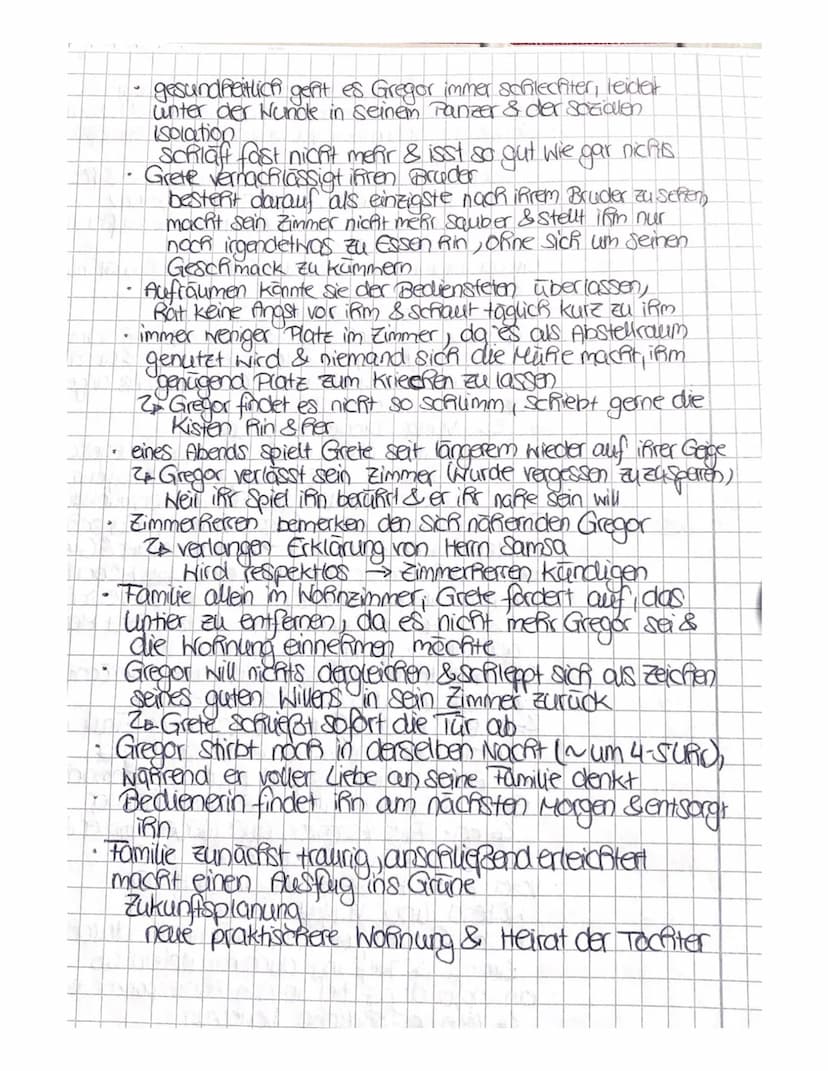 · gesundheitlich geht es Gregor immer schlechter, leidet
unter der Wunde in seinem Panzer & der sozialen
Isolation
schläft fast nicht mehr & isst so gut wie gar nichts
· Grete vernachlässigt ihren Bruder
besteht darauf als einzigste nach ihrem Bruder zu sehen,
macht sein Zimmer nicht mehr sauber & stellt ihm nur
noch irgendetwas zu Essen hin, ohne sich um seinen
Geschmack zu kümmern
· Aufräumen könnte sie der Bediensteten überlassen,
hat keine Angst vor ihm & schaut täglich kurz zu ihm
· immer weniger Platz im Zimmer, da es als Abstellraum
genutzt wird & niemand sich die Mühe macht, ihm
genügend Platz zum Kriechen zu lassen
↳ Gregor findet es nicht so schlimm, schiebt gerne die
Kisten hin & her
· eines Abends spielt Grete seit längerem wieder auf ihrer Geige
↳ Gregor verlässt sein Zimmer (wurde vergessen zuzusperen)
weil ihr Spiel ihn berührt & er ihr nahe sein will
· Zimmerherren bemerken den sich nähernden Gregor
↳ verlangen Erklärung von Herrn Samsa
wird respektlos → Zimmerherren kündigen
· Familie allein im Wohnzimmer; Grete fordert auf, das
Untier zu entfernen, da es nicht mehr Gregor sei &
die Wohnung einnehmen möchte
· Gregor will nichts dergleichen & schleppt sich als Zeichen
seines guten Willens in sein Zimmer zurück
↳ Grete schließt sofort die Tür ab
· Gregor stirbt noch in derselben Nacht (~ um 4-5 Uhr),
während er voller Liebe an seine Familie denkt
· Bedienerin findet ihn am nächsten Morgen & entsorgt
ihn
· Familie zunächst traurig, anschließend erleichtert
macht einen Ausflug ins Grüne
Zukunftsplanung
neue praktischere Wohnung & Heirat der Tochter